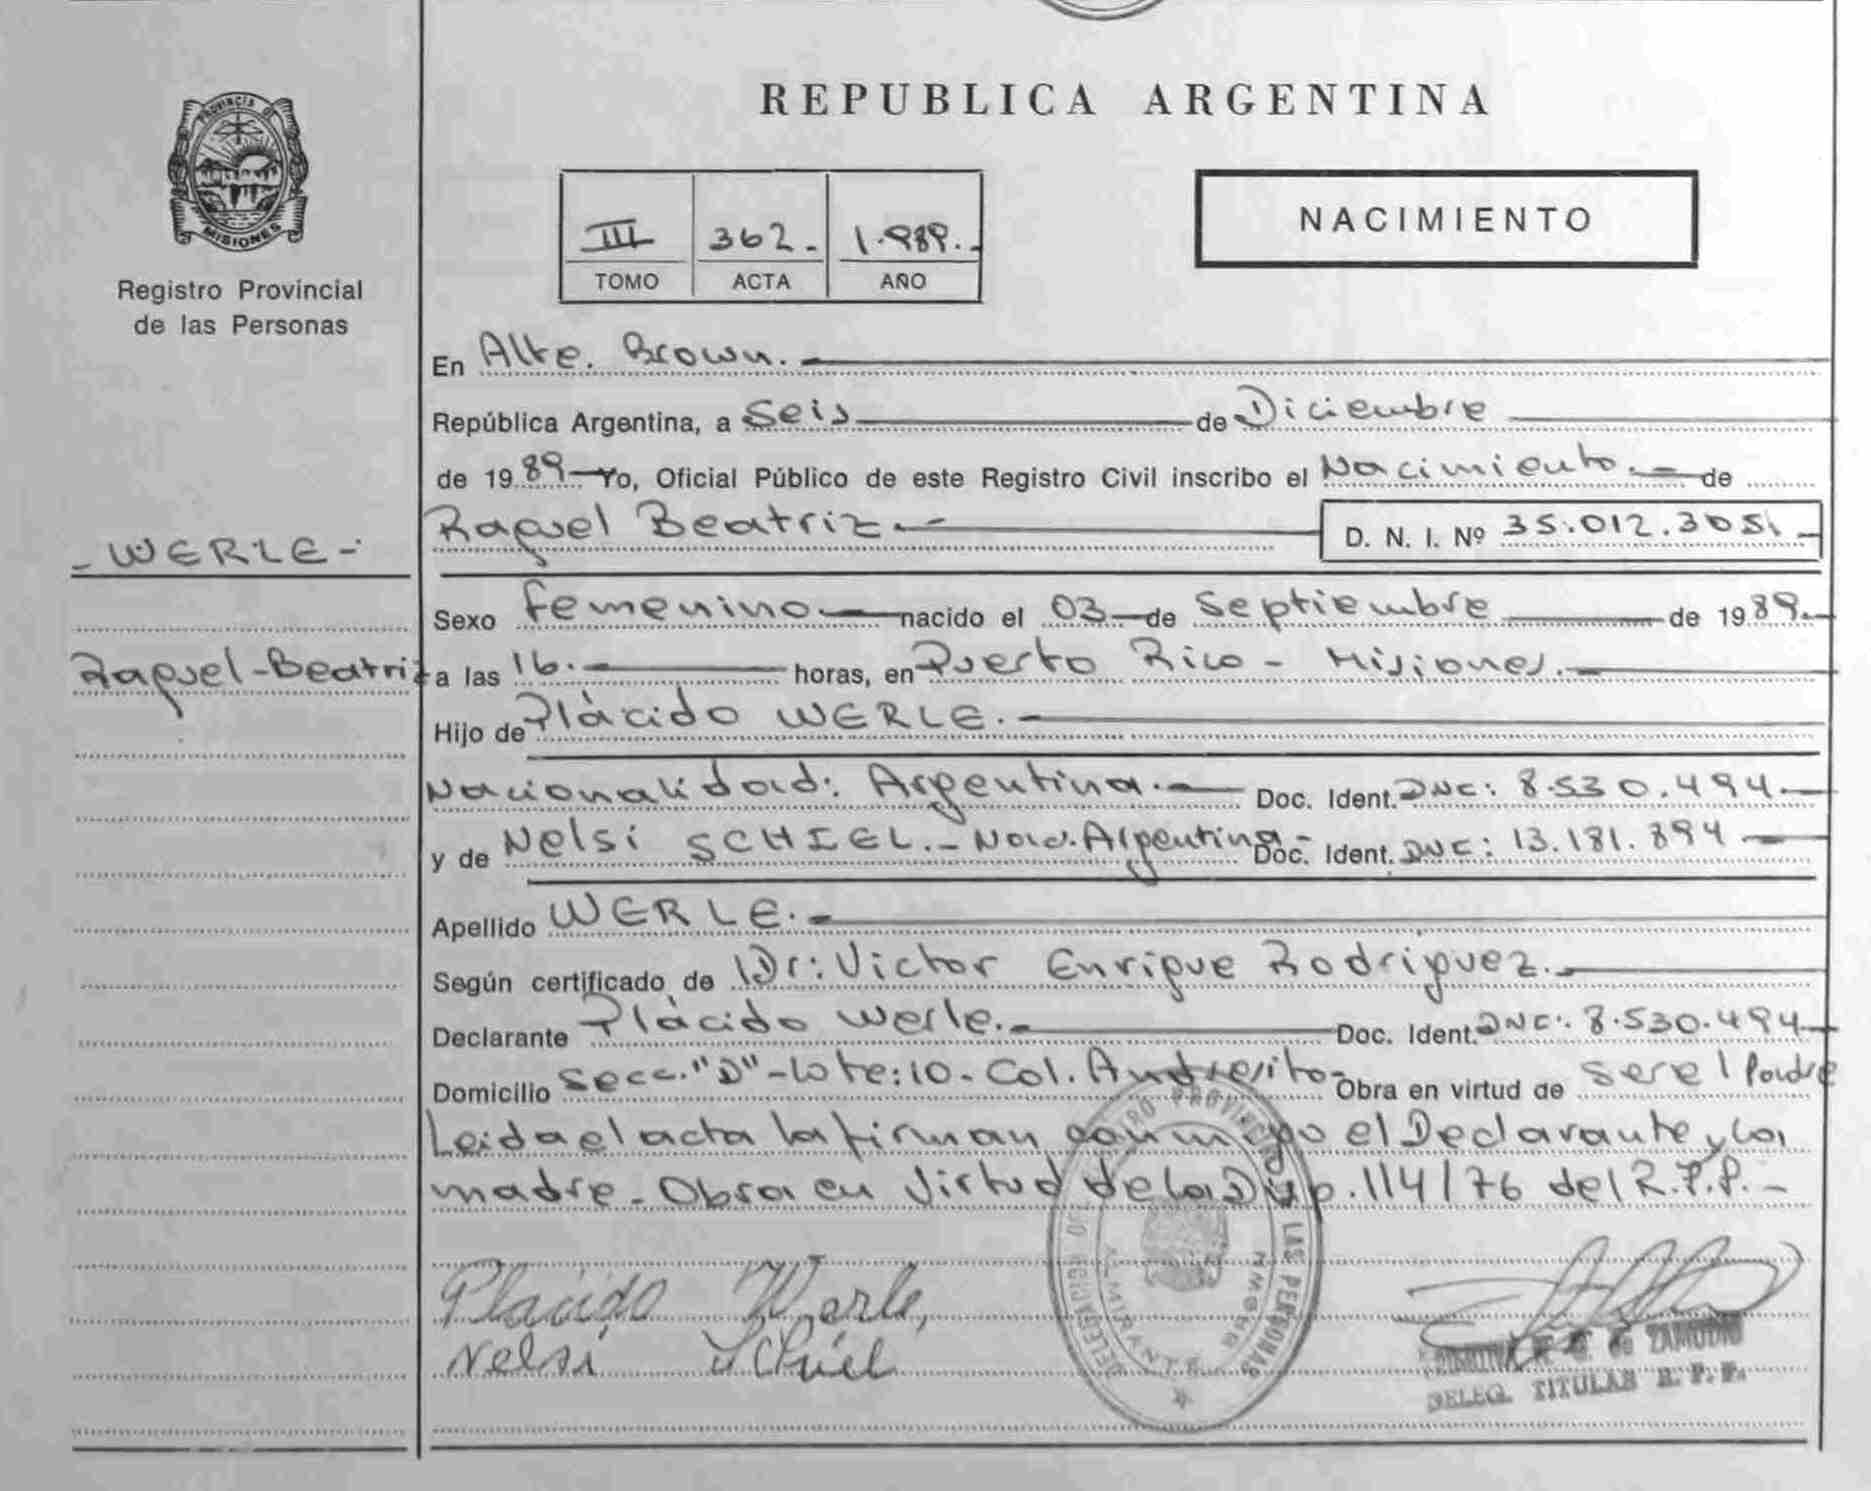 REPUBLICA ARGENTINA
PROVINCIA DE
MISIONES
Registro Provincial
de las Personas
III 362.- 1.989.-
TOMO ACTA AÑO
NACIMIENTO
En Alte. Brown.
República Argentina, a Seis de Diciembre
de 1989 Yo, Oficial Público de este Registro Civil inscribo el Nacimiento.- de
- WERLE -
Raquel Beatriz.- D. N. I. Nº 35.012.305.-
Sexo femenino nacido el 03 de Septiembre de 1989.-
Raquel-Beatriz
a las 16.- horas, en Puerto Rico - Misiones.-
Hijo de Plácido WERLE.-
Nacionalidad: Argentina.- Doc. Ident. DNI: 8.530.494-
y de Nelsi SCHIEL.- Nac. Argentina- Doc. Ident. DNI: 13.181.894-
Apellido WERLE.-
Según certificado de Dr: Victor Enrique Rodriguez.-
Declarante Plácido Werle.- Doc. Ident. DNI: 8.530.494-
Domicilio Secc. "D"-Lote:10-Col. Andresito- Obra en virtud de ser el Padre
Leida el acta la firman conmigo el Declarante y la
madre.- Obra en virtud de la Disp. 114/76 del R.P.P.-
Plácido Werle,
Nelsi Schiel
DELEGACION DEL REGISTRO PROVINCIAL DE LAS PERSONAS
ALMIRANTE BROWN
DE ZAMUDIO
DELEG. TITULAR R. P. P.